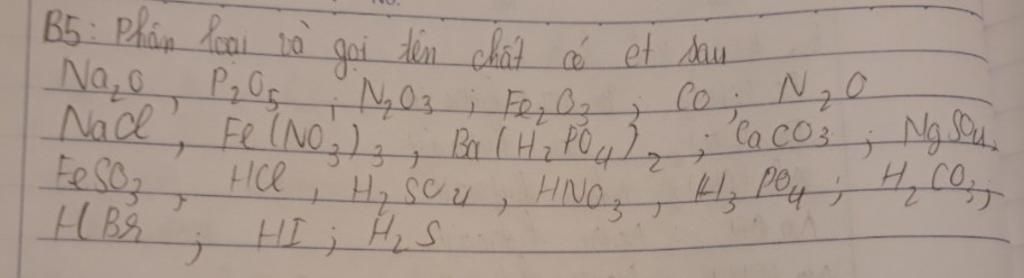 B5: Phân loại và gọi tên chất có ct sau
Na₂O, P₂O₅; N₂O₃; Fe₂O₃; CO; N₂O
NaCl, Fe(NO₃)₃, Ba(H₂PO₄)₂; CaCO₃; NgSO₄,
FeSO₃, HCl, H₂SO₄, HNO₃, H₃PO₄; H₂CO₃;
HBr; HI; H₂S